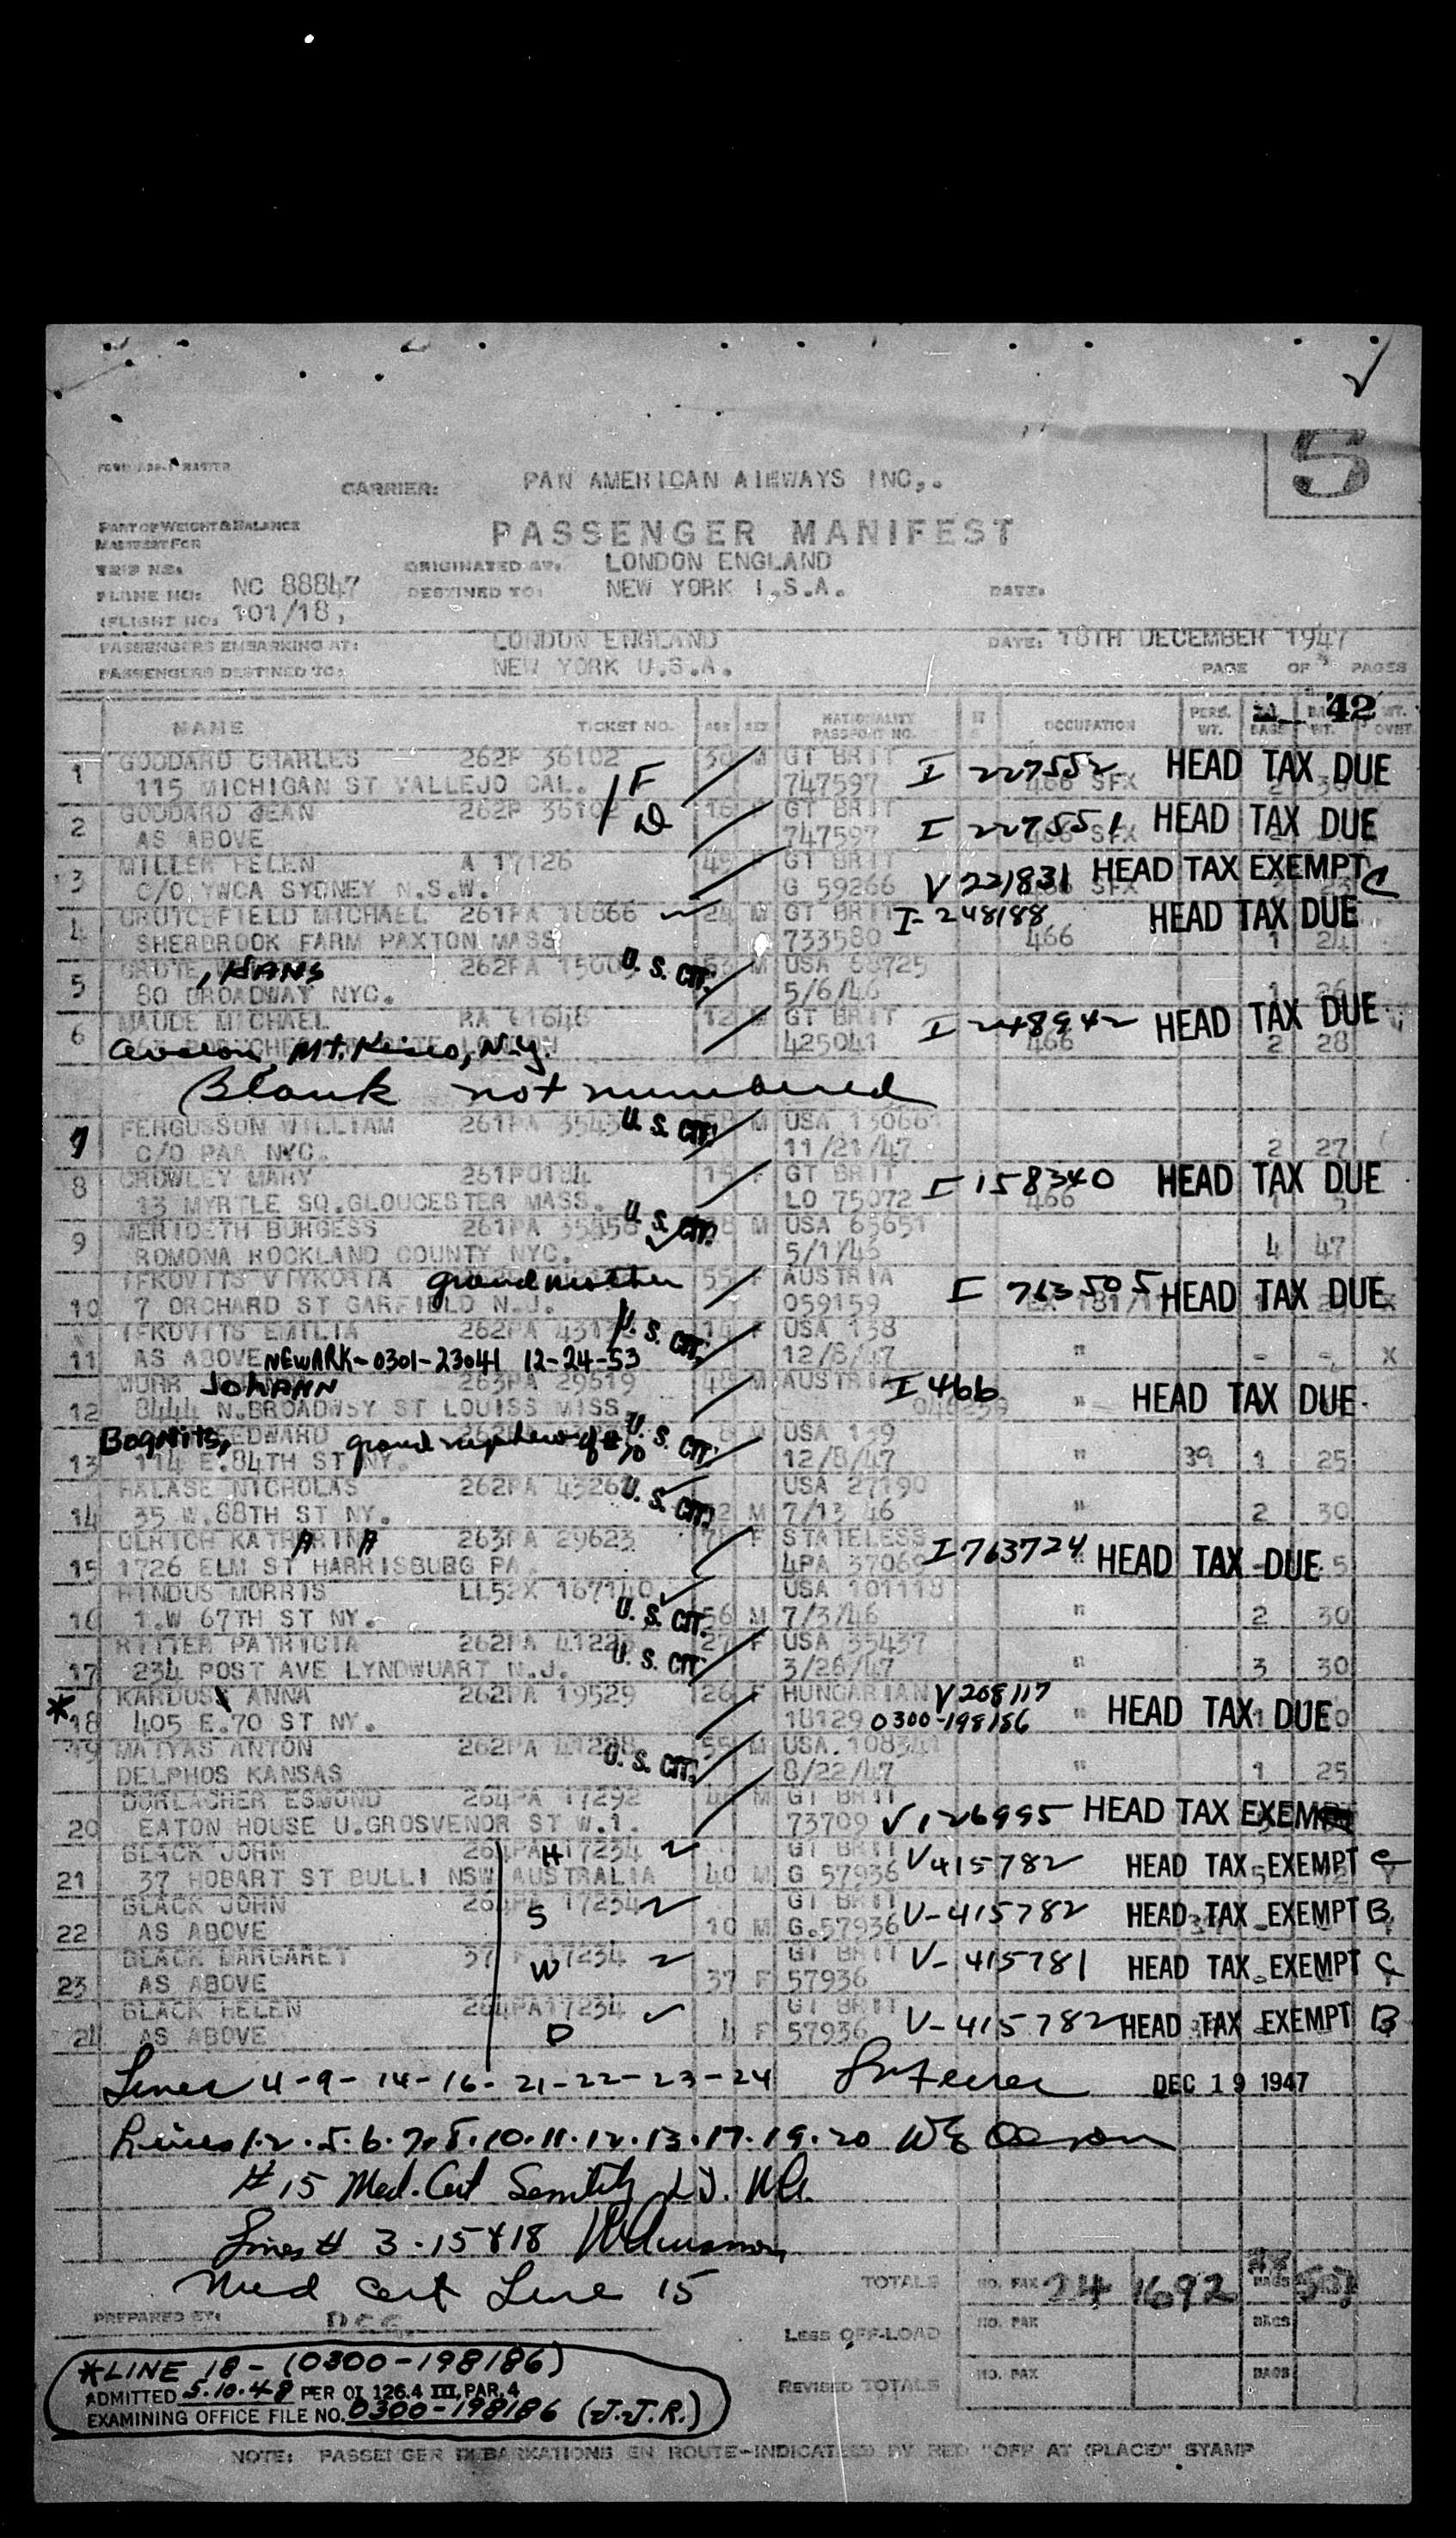 5
CARRIER: PAN AMERICAN AIRWAYS INC,.
PART OF WEIGHT & BALANCE
MANIFEST FOR
PASSENGER MANIFEST
TRIP NO: ORIGINATED AT: LONDON ENGLAND
PLANE NO: NC 88847 DESTINED TO: NEW YORK I.S.A. DATE:
(FLIGHT NO: 101/18,
PASSENGERS EMBARKING AT: LONDON ENGLAND DATE: 18TH DECEMBER 1947
PASSENGERS DESTINED TO: NEW YORK U.S.A. PAGE OF PAGES
42
NAME TICKET NO. AGE SEX NATIONALITY PASSPORT NO. OCCUPATION PERS. WT.
1 GODDARD CHARLES 262P 36102 30 M GT BRIT I 227552 HEAD TAX DUE
115 MICHIGAN ST VALLEJO CAL. F 747597 466 SFX
2 GODDARD JEAN 262P 36102 D 16 GT BRIT I 227551 HEAD TAX DUE
AS ABOVE 747597
3 MILLER HELEN A 17126 49 GT BRIT HEAD TAX EXEMPT C
C/O YWCA SYDNEY N.S.W. G 59266 V 221831 SFX
4 CRUTCHFIELD MICHAEL 261PA 18866 24 M GT BRIT I-248188 HEAD TAX DUE
SHERBROOK FARM PAXTON MASS 733580 466 1 24
5 , HANS 262PA U. S. CIT. M USA 68725
80 BROADWAY NYC. 5/6/46 1 26
6 MAUDE MICHAEL RA 61648 12 M GT BRIT I 248942 HEAD TAX DUE
Mt. Kisco, N.Y. 425041 466 2 28
Blank not numbered
7 FERGUSSON WILLIAM 261PA U. S. CIT. 58 M USA
C/O PAA NYC. 11/21/47 2 27
8 CROWLEY MARY 261P0184 15 F GT BRIT I 158340 HEAD TAX DUE
13 MYRTLE SQ.GLOUCESTER MASS. LO 75072 466
9 MERIDETH BURGESS 261PA U. S. CIT. M USA 65651
ROMONA ROCKLAND COUNTY NYC. 5/1/46 4 47
10 IFKOVITS VIYKORIA grandmother 55 F AUSTRIA I 763505 HEAD TAX DUE
7 ORCHARD ST GARFIELD N.J. 059159
11 IFKOVITS EMILIA 262PA U. S. CIT. 14 F USA 138
AS ABOVE NEWARK-0301-23041 12-24-53 12/8/47 " - - X
12 MURR JOHANN 263PA 29619 48 M AUSTRIA I 466 HEAD TAX DUE
8444 N.BROADWSY ST LOUISS MISS "
13 Bognits, EDWARD grand nephew of #10 U. S. CIT. 8 M USA 139
114 E.84TH ST NY. 12/8/47 " 39 1 25
14 HALASE NICHOLAS 262PA U. S. CIT. USA 27190
35 W.88TH ST NY. M 7/13 46 " 2 30
15 ULRICH KATHARINA 263PA 29623 F STATELESS I 763724 HEAD TAX DUE
1726 ELM ST HARRISBURG PA. 4PA 37069
16 HINDUS MORRIS LL52X 167140 USA 101118
1.W 67TH ST NY. U. S. CIT. 56 M 7/3/46 " 2 30
17 RITTER PATRICIA 262PA U. S. CIT. 27 F USA 35437
234 POST AVE LYNDWUART N.J. 3/26/47 " 3 30
*18 KARDUSS ANNA 262PA 19529 26 F HUNGARIAN V 268117 HEAD TAX DUE
405 E.70 ST NY. 18129 0300-198186 "
19 MATYAS ANTON 262PA U. S. CIT. 55 M USA.
DELPHOS KANSAS 8/22/47 " 1 25
20 DURLACHER ESMOND 264PA 17292 M GT BRIT V 126995 HEAD TAX EXEMPT
EATON HOUSE U.GROSVENOR ST W.1. 73709
21 BLACK JOHN 264PA 17234 H GT BRIT V415782 HEAD TAX EXEMPT C
37 HOBART ST BULLI NSW AUSTRALIA 40 M G 57936
22 BLACK JOHN 264PA 17234 S GT BRIT V-415782 HEAD TAX EXEMPT B
AS ABOVE 10 M G.57936
23 BLACK MARGARET 37 F 17234 W GT BRIT V-415781 HEAD TAX EXEMPT C
AS ABOVE 37 F 57936
24 BLACK HELEN 264PA17234 D GT BRIT V-415782 HEAD TAX EXEMPT B
AS ABOVE 4 F 57936
Lines 4-9-14-16-21-22-23-24 DEC 19 1947
Lines 1.2.5.6.7.8.10.11.12.13.17.19.20
#15 Med. Cert Senility
Lines # 3-15&18
Med Cert Line 15
TOTALS NO. PAX 24 1692 BAGS
PREPARED BY:
LESS OFF-LOAD NO. PAX BAGS
REVISED TOTALS NO. PAX BAGS
*LINE 18 - (0300-198186)
ADMITTED 5.10.48 PER OI 126.4 III, PAR. 4
EXAMINING OFFICE FILE NO. 0300-198186 (J.J.R.)
NOTE: PASSENGER DEBARKATIONS EN ROUTE-INDICATED BY RED "OFF AT (PLACE)" STAMP